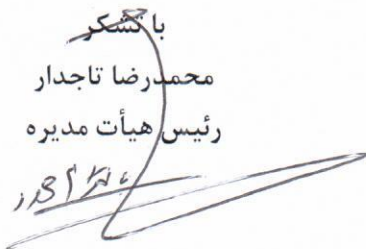 با تشکر
محمدرضا تاجدار
رئیس هیأت مدیره